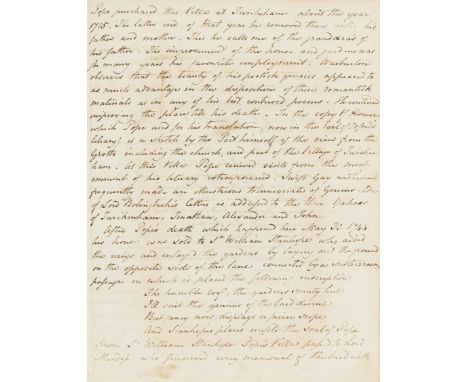 Pope purchased this Villa at Twickenham about the year
1715. The latter end of that year he removed there with his
father and mother. This he calls one of the grand æras of
his father. The improvement of the house and gardens was
for many years his favourite employment. Warburton
observes that the beauty of his poetick genius appeared to
as much advantage in the disposition of these romantick
materials as in any of his best contrived poems. He continued
improving the place till his death. In the copy of Homer
which Pope used for his translation (now in the Earl of
library) is a sketch by the Poet himself of the view from the
Grotto including the church and part of the village of Twicken
ham. At this Villa Pope recieved visits from the most
eminent of his literary cotemporaries. Swift Gay and himself
frequently made an illustrious triumvirate of Genius. One
of Lord Bolingbroke's letters is addressed to the three Yahoos
of Twickenham, Jonathan, Alexander and John
After Popes death which happened here May 30 1744
his house was sold to Sr William Stanhope who added
the wings and enlarg'd the gardens by laying out the ground
on the opposite side of the lane connected by a subterraneous
passage in which is placed the following inscription
The humble roof, the gardens scanty line
Ill suit the genius of the bard divine
But fancy now displays a fairer scope
And Stanhopes plans unfold the soul of Pope
From Sr William Stanhope Pope's Villa pass'd to Lord
Mendip who preserved every memorial of the bard with